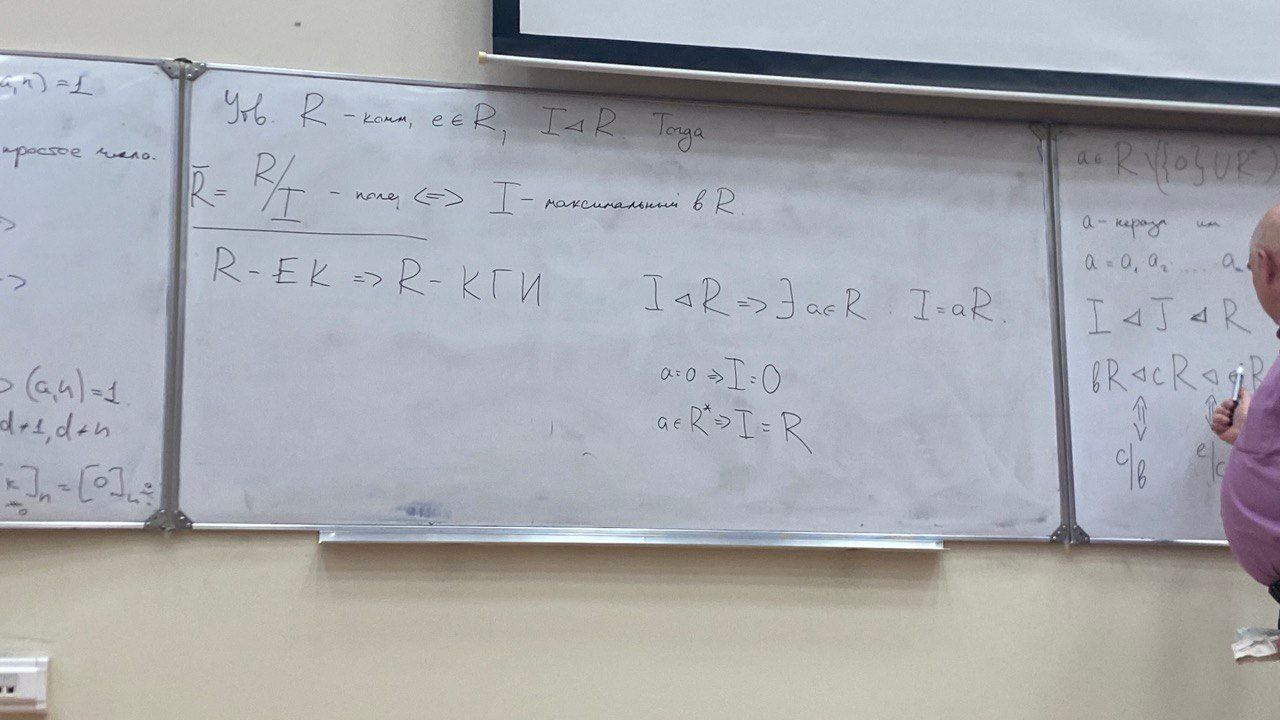 a, n) = 1
простое число.
=>
=>
=> (a, n) = 1.
d ≠ 1, d ≠ n
]ₙ = [0]ₙ
Утв. R - комм, e ∈ R, I ⊲ R. Тогда
R̄ = R/I - поле, <=> I - максимальный в R.
R - ЕК => R - КГИ
I ⊲ R => ∃ a ∈ R : I = aR.
a = 0 => I = 0
a ∈ R* => I = R
a ∈ R \ ({0} ∪ R*)
a - нераз
a = a₁ a₂ .... a
I ⊲ J ⊲ R
вR ⊲ cR ⊲ eR
⇕ ⇕
c|в e|c